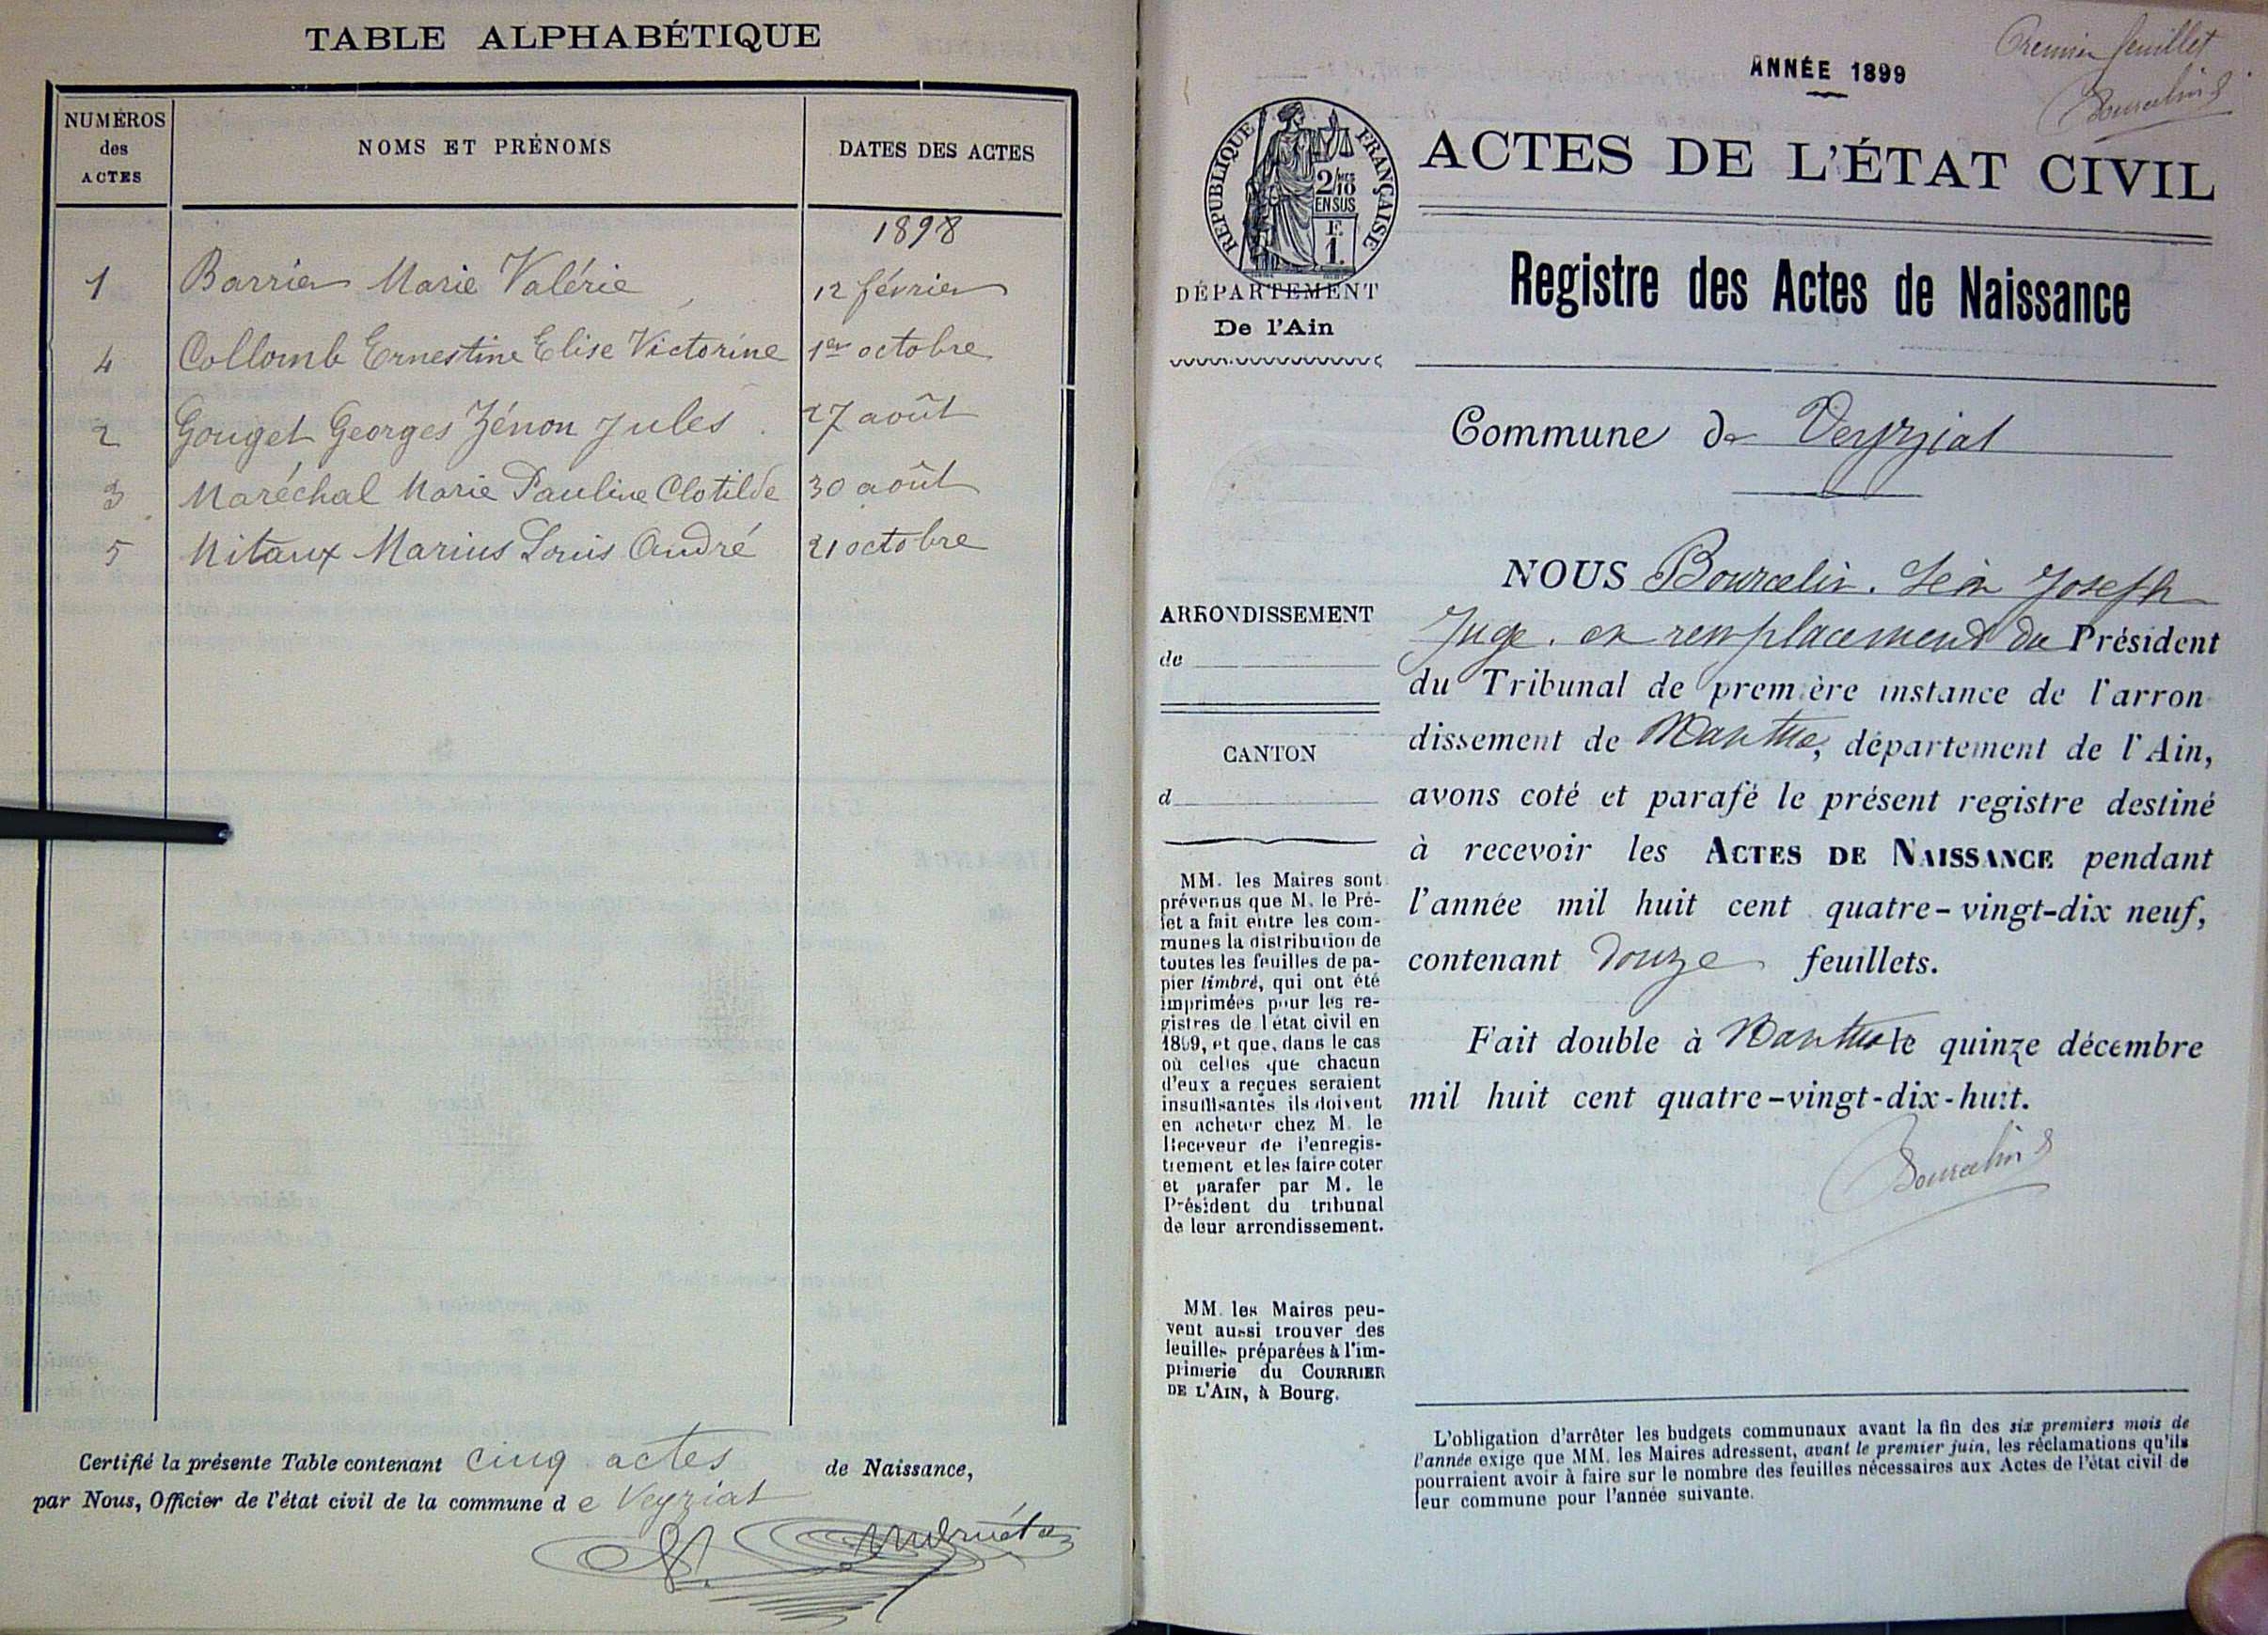 TABLE ALPHABÉTIQUE
NUMÉROS des ACTES
NOMS ET PRÉNOMS
DATES DES ACTES
1898
1 Barrier Marie Valérie 12 février
4 Collomb Ernestine Elise Victorine 1er octobre
2 Gouget Georges Zénon Jules 27 août
3 Maréchal Marie Pauline Clotilde 30 août
5 Mitaux Marius Louis André 21 octobre
Certifié la présente Table contenant cinq actes de Naissance,
par Nous, Officier de l'état civil de la commune de Veyziat
Premier feuillet
Bourcelin
ANNÉE 1899
RÉPUBLIQUE FRANÇAISE
2/10
EN SUS
F.
1.
ACTES DE L'ÉTAT CIVIL
DÉPARTEMENT
De l'Ain
Registre des Actes de Naissance
Commune de Veyziat
ARRONDISSEMENT
de
CANTON
d
MM. les Maires sont
prévenus que M. le Pré-
fet a fait entre les com-
munes la distribution de
toutes les feuilles de pa-
pier timbré, qui ont été
imprimées pour les re-
gistres de l'état civil en
1899, et que, dans le cas
où celles que chacun
d'eux a reçues seraient
insuffisantes ils doivent
en acheter chez M. le
Receveur de l'enregis-
trement et les faire coter
et parafer par M. le
Président du tribunal
de leur arrondissement.
MM. les Maires peu-
vent aussi trouver des
feuilles préparées à l'im-
primerie du COURRIER
DE L'AIN, à Bourg.
NOUS Bourcelin. Léon Joseph
Juge. en remplacement du Président
du Tribunal de première instance de l'arron-
dissement de Nantua, département de l'Ain,
avons coté et parafé le présent registre destiné
à recevoir les ACTES DE NAISSANCE pendant
l'année mil huit cent quatre-vingt-dix neuf,
contenant douze feuillets.
Fait double à Nantua le quinze décembre
mil huit cent quatre-vingt-dix-huit.
Bourcelin
L'obligation d'arrêter les budgets communaux avant la fin des six premiers mois de
l'année exige que MM. les Maires adressent, avant le premier juin, les réclamations qu'ils
pourraient avoir à faire sur le nombre des feuilles nécessaires aux Actes de l'état civil de
leur commune pour l'année suivante.